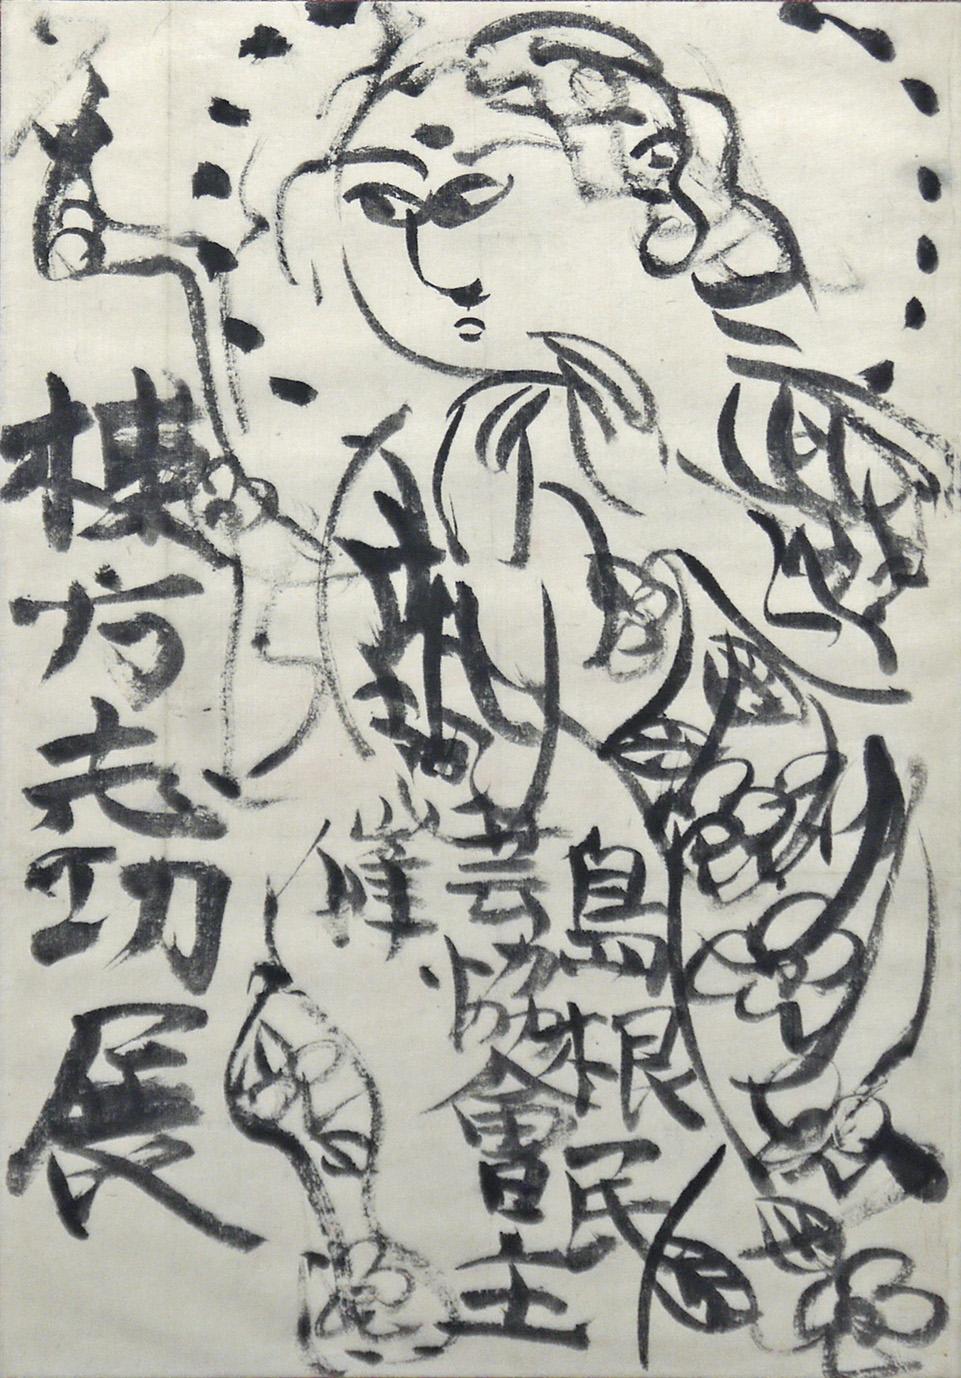 島根民
芸協會主
催
棟方志功展